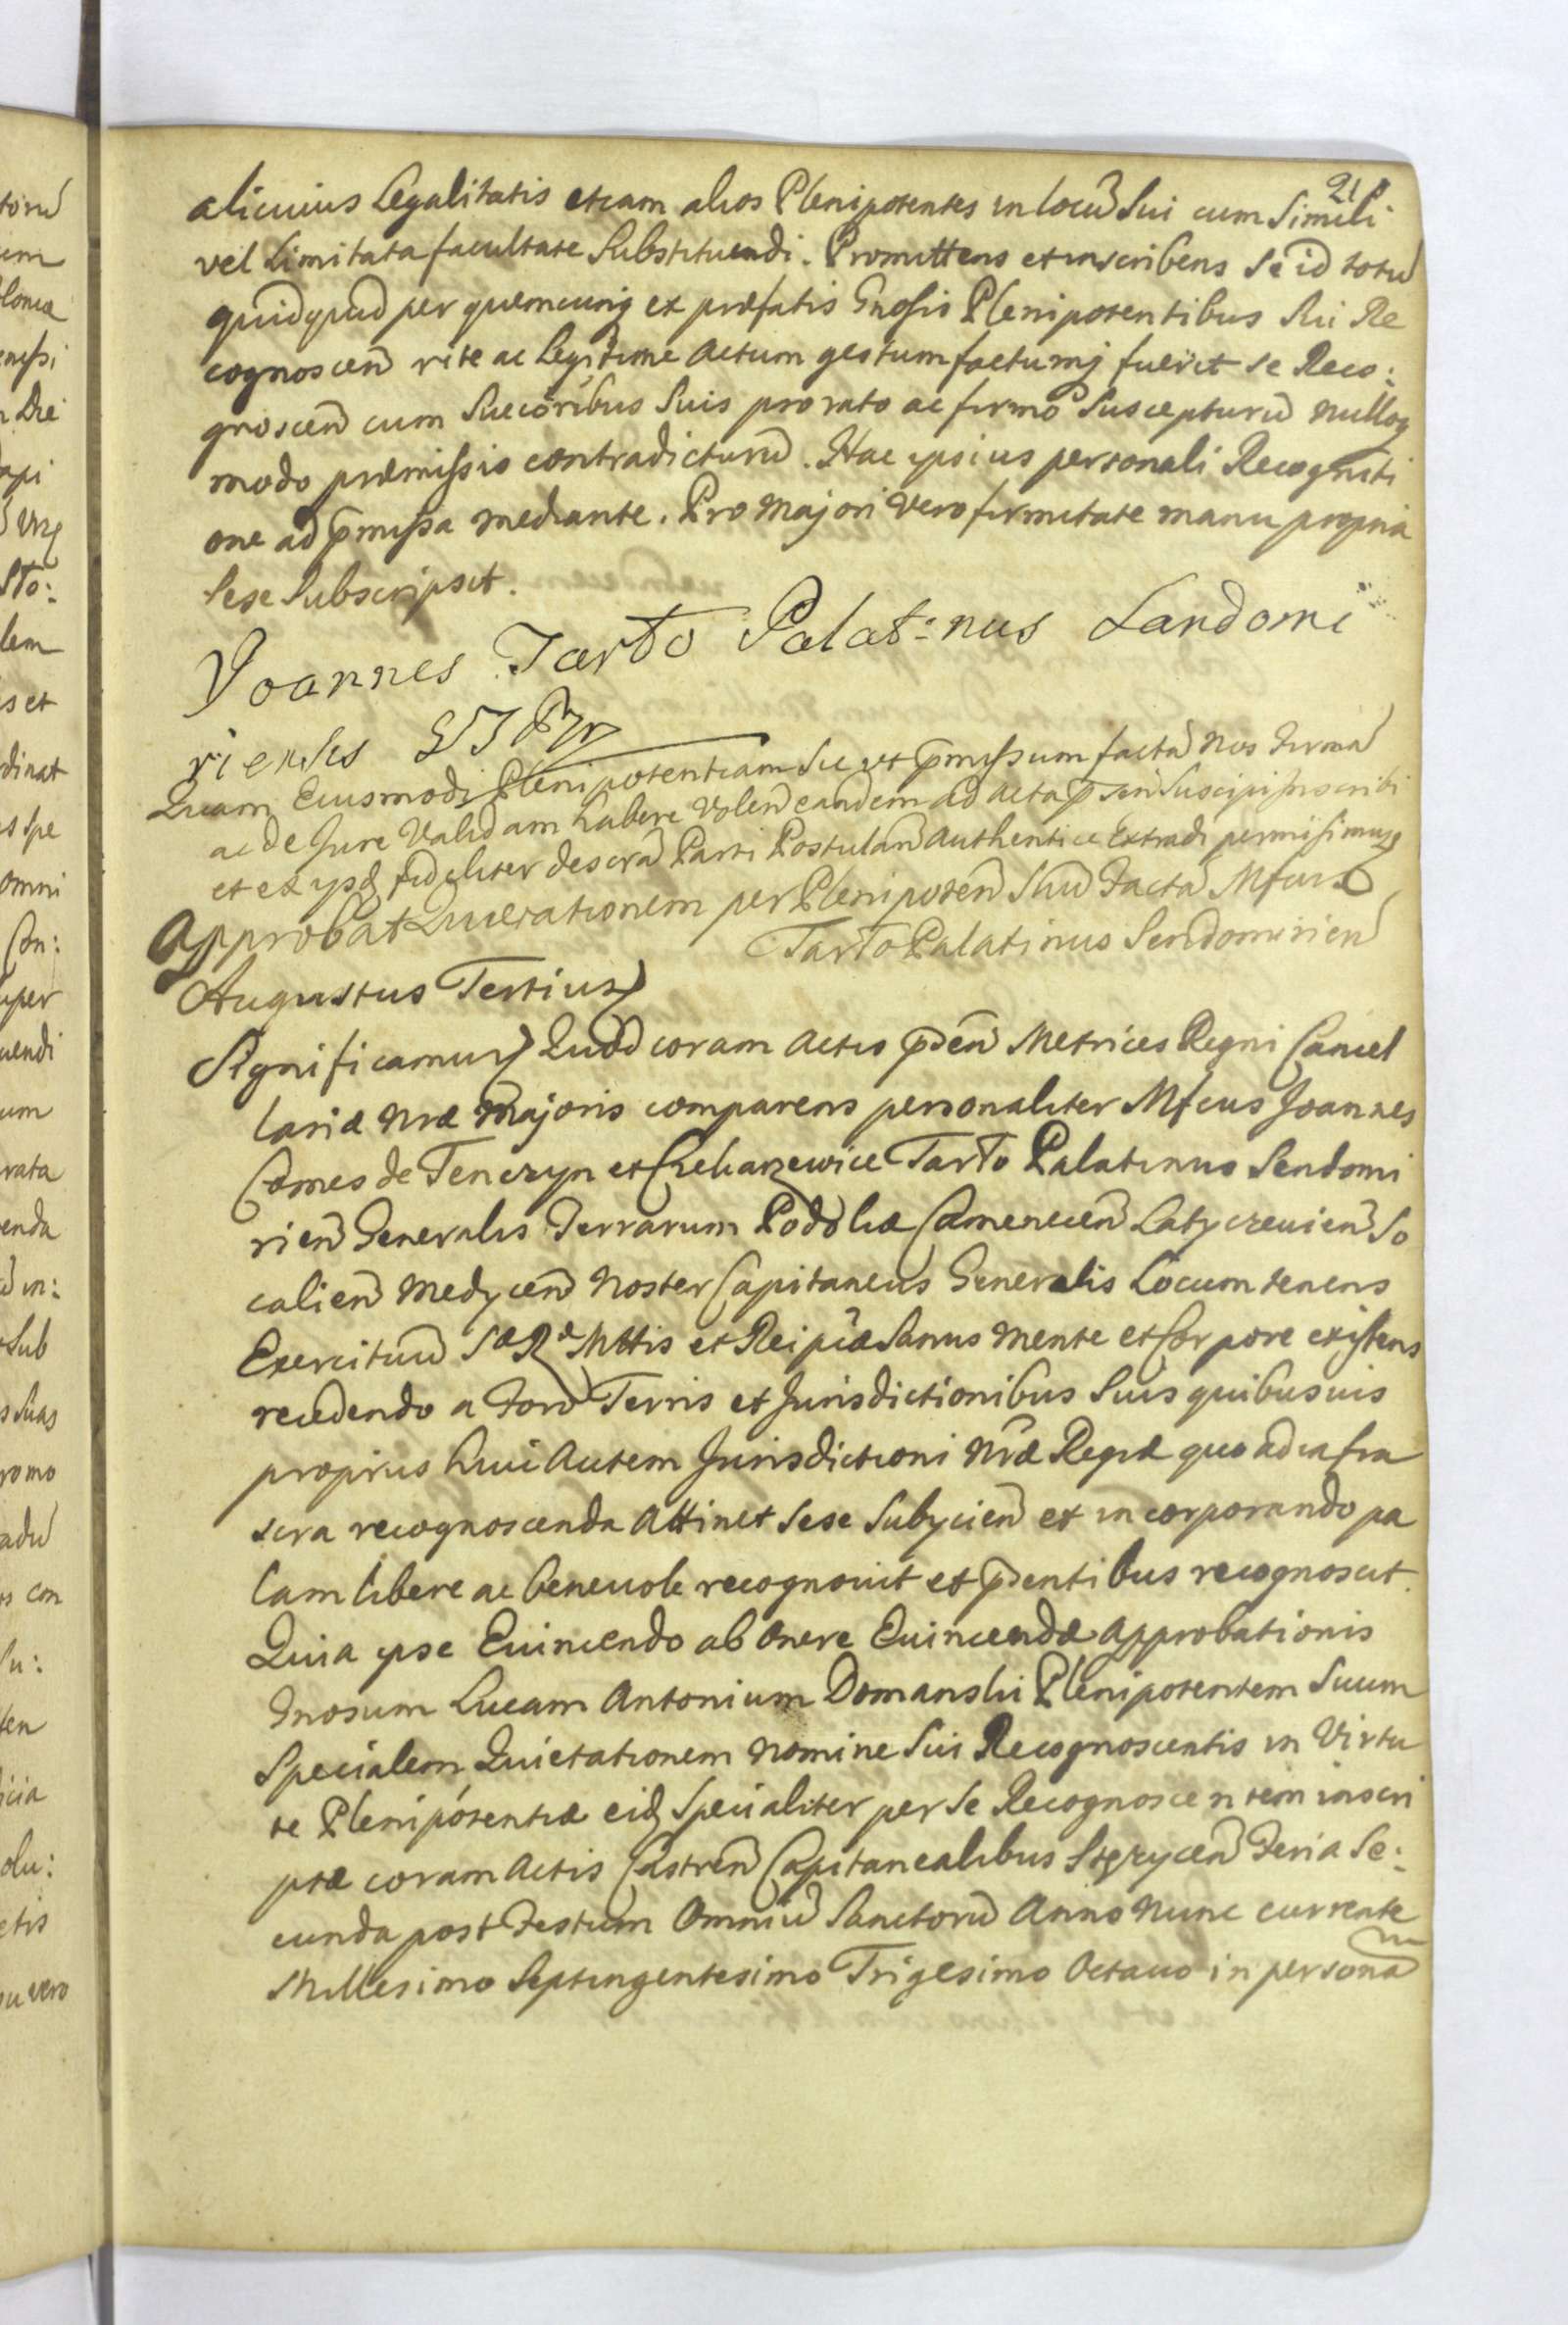 21
alicuius Legalitatis etiam alios Plenipotentes in locũ Sui cum Simili
vel Limitata facultate Substituendi. Promittens et inscribens Se id totũ
quidquid per quemcunq ex præfatis Gnosis Plenipotentibus Sui Re
cognoscen̄ rite ac Legitime Actum gestum factumq fuerit se Reco:
gnoscen̄ cum Succoribus Suis pro rato ac firmo Suscepturũ nulloq
modo præmissis contradicturũ. Hac ipsius personali Recogniti
one ad p̄missa mediante. Pro Majori Vero firmitate manu propria
Sese Subscripsit.
Joannes Tarło Palat:nus Sandomi
rienses
Quam Eiusmodi Plenipotentiam Sic ut p̄missum factã Nos firmã
ac de Jure Validam habere Volen̄ eandem ad Acta p̄sen̄ Suscipi Inscribi
et ex ysd fideliter descrã Parti Postulan̄ Authentice Extradi permisimus
Approbat Quietationem per Plenipoten̄ Suũ Facta Mfcus
Tarło Palatinus Sendomirien̄
Augustus Tertius
Significamus Quod coram Actis p̄sen̄ Metrices Regni Cancel
lariæ Nræ Majoris comparens personaliter Mfcus Joannes
Comes de Tenczyn et Czekarzewice Tarło Palatinus Sendomi
rien̄ Generalis Terrarum Podoliæ Camenecen̄ Latyczevien̄ So
calien̄ Medycen̄ Noster Capitaneus Generalis Locumtenens
Exercituũ S Ræ Mttis et Reipcæ Sanus mente et Corpore existens
recedendo a Foro Terris et Jurisdictionibus Suis quibusuis
proprius huic Autem Jurisdictioni Nræ Regiæ quo ad infra
scra recognoscenda Attinet Sese Subycien̄ et incorporando pa
lam libere ac benevole recognovit et p̄sentibus recognoscit.
Quia ipse Evincendo ab Onere Evincendæ Approbationis
Gnosum Lucam Antonium Domanski Plenipotentem Suum
Specialem Quietationem Nomine Sui Recognoscentis in Virtu
te Plenipotentiæ eid Specialiter per Se Recognoscentem inscri
ptæ coram Actis Castren̄ Capitanealibus Stęzycen̄ Feria Se:
cunda post Festum Omniũ Sanctorũ Anno Nunc currente
Millesimo Septingentesimo Trigesimo Octavo in personã